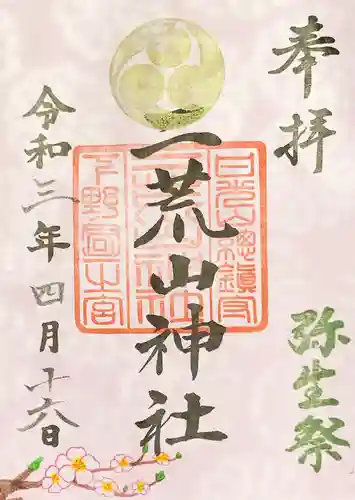 奉拝
弥生祭
日光山總鎮守
二荒山神社
二荒山神社
下野國一之宮
令和三年四月十六日